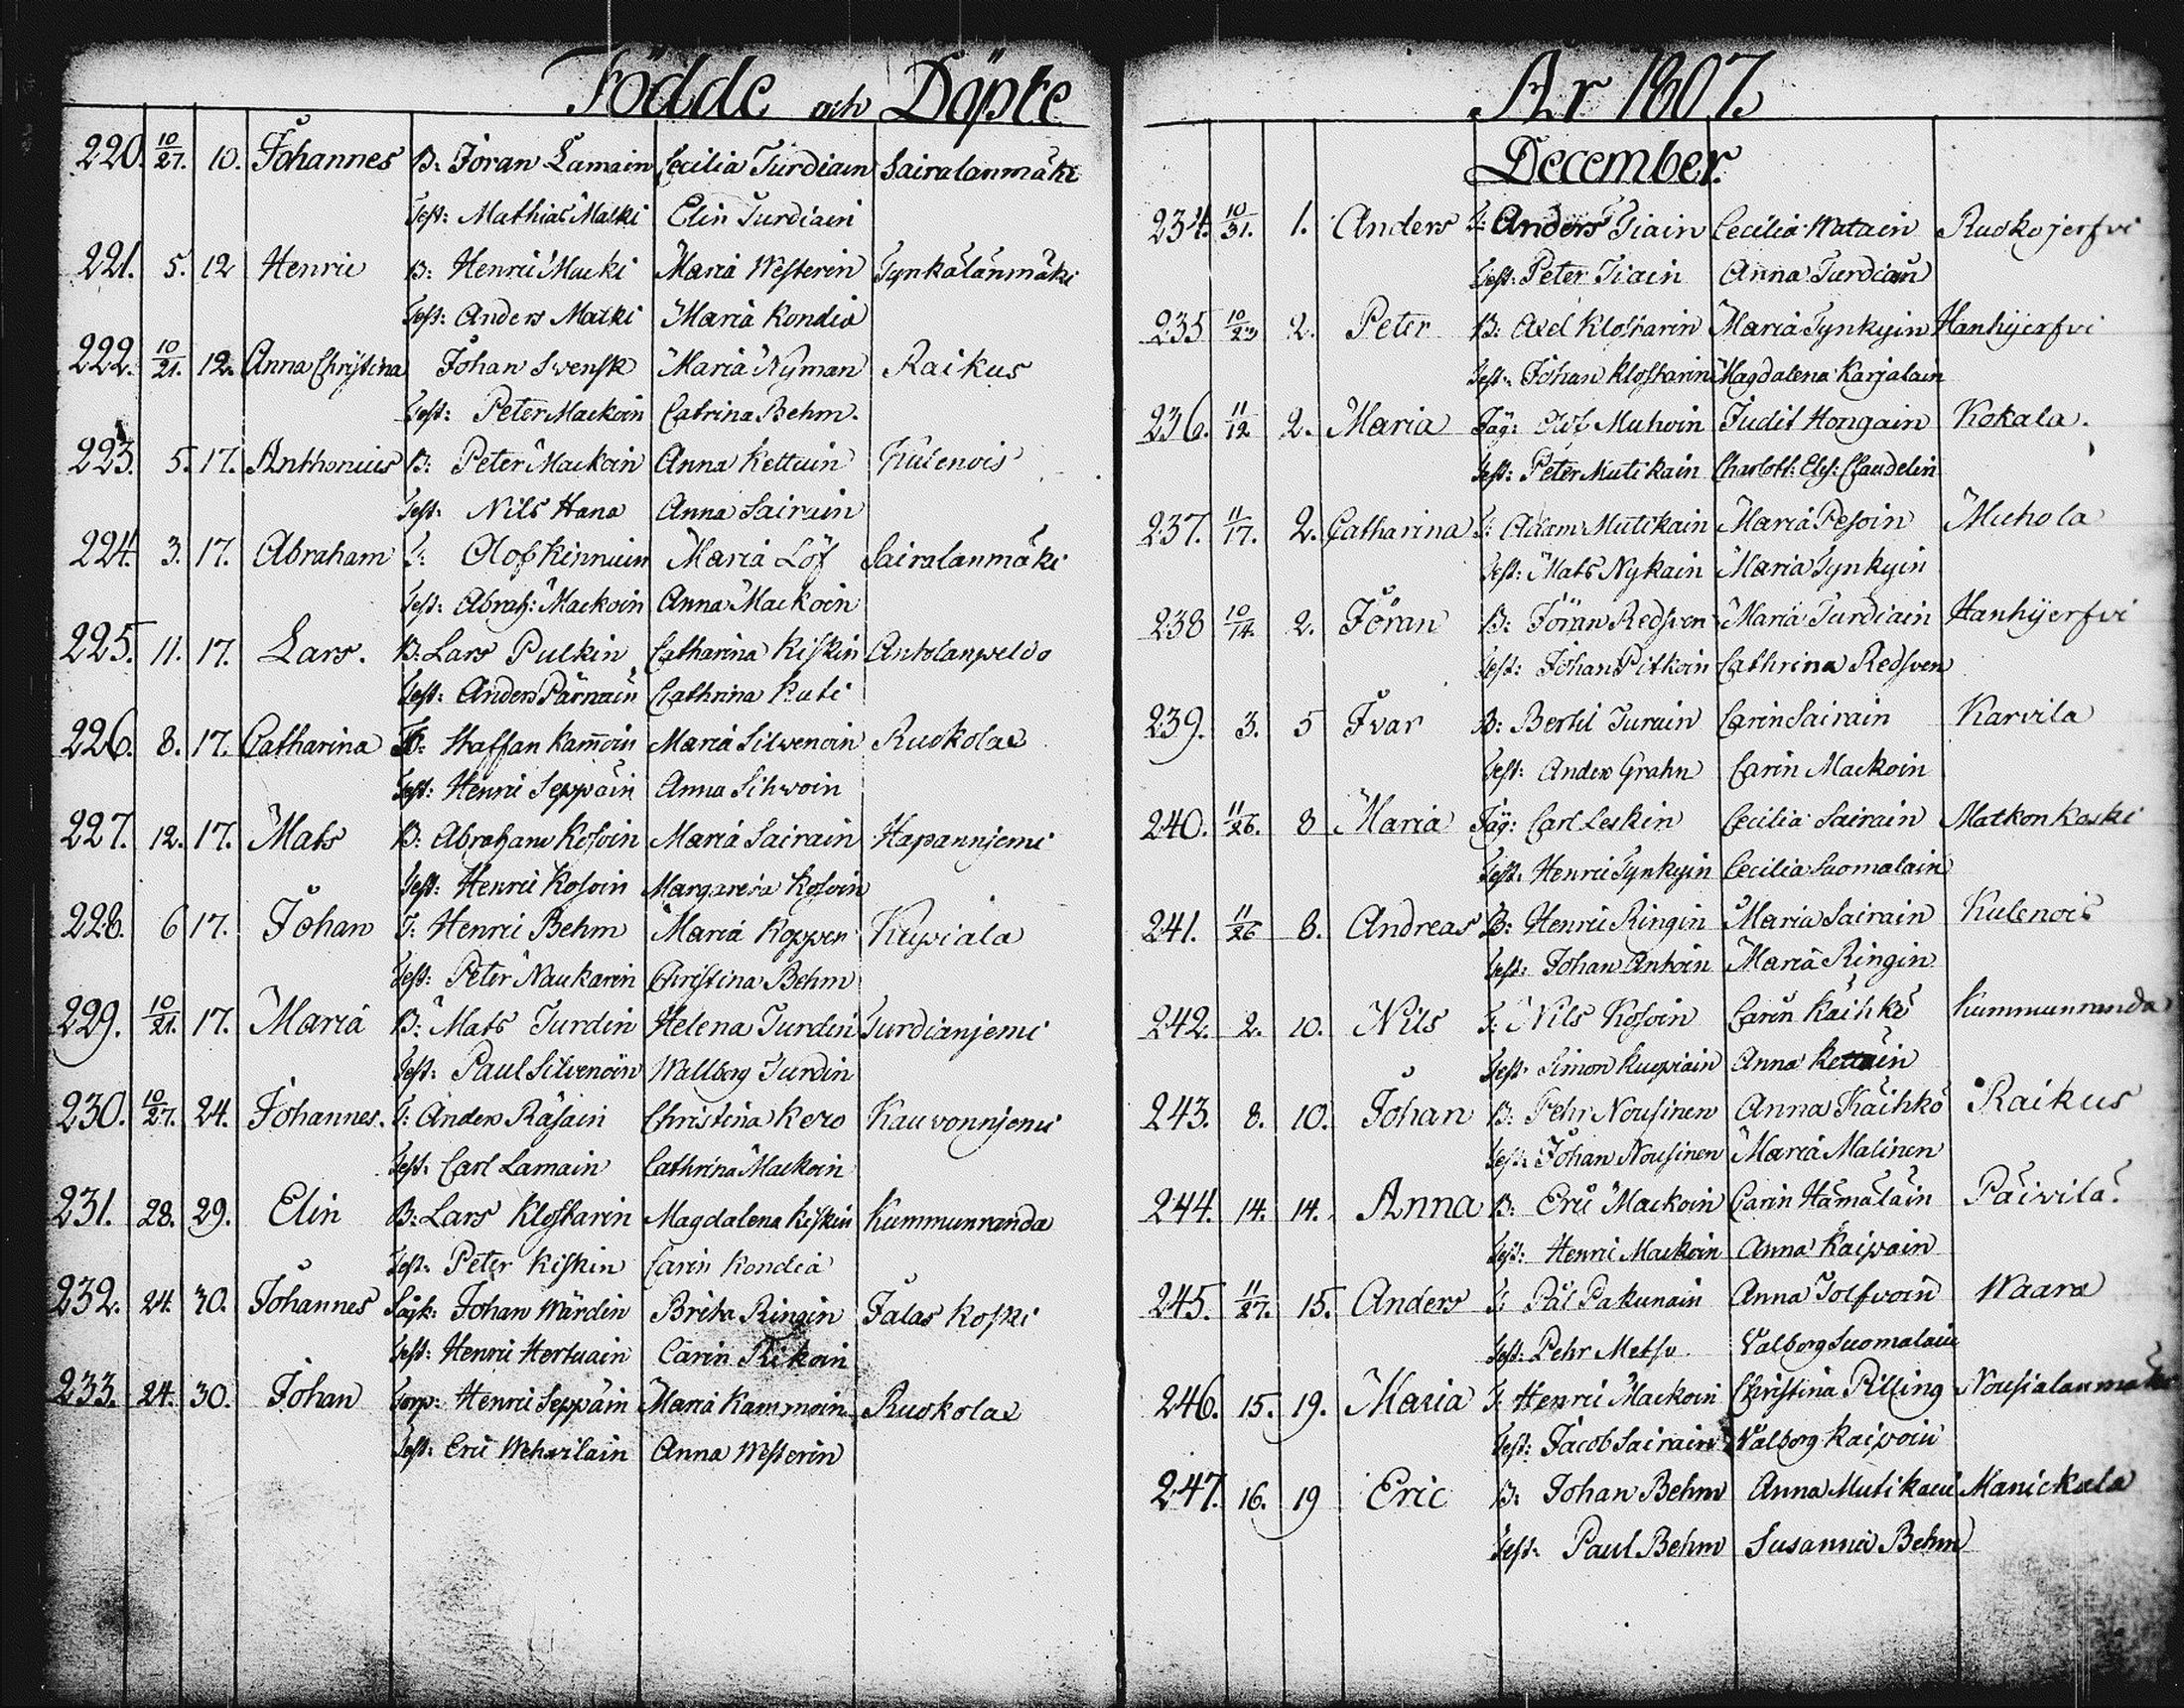 Födde och Döpte
220. 10/27. 10. Johannes B: Jöran Lamain Cecilia Turdiain Sairalanmäki
Test: Mathias Matki Elin Turdiain
221. 5. 12 Henric B: Henric Matki Maria Westerin Tynkälänmäki
Test: Anders Matki Maria Kondia
222. 10/21. 12. Anna Christina Johan Svensk Maria Nyman Raikus
Test: Peter Mackoin Catrina Behm.
223. 5. 17. Anthonius B: Peter Mackoin Anna Kettuin Kulenois
Test: Nils Hana Anna Sairain
224. 3. 17. Abraham T: Olof Kinnuin Maria Löf Sairalanmäki
Test: Abrah: Mackoin Anna Mackoin
225. 11. 17. Lars. B: Lars Pulkin Catharina Kiskin Antolanpeldo
Test: Anders Pärnäin Cathrina Kuti
226. 8. 17. Catharina Staffan Kam̄oin Maria Silvenoin Ruokolax
Test: Henric Seppäin Anna Sihvoin
227. 12. 17. Mats B: Abraham Kosoin Maria Sairain Hapannjemi
Test: Henric Kosoin Margareta Kosoin
228. 6 17. Johan T: Henric Behm Maria Koppen Kupiala
Test: Peter Naukarin Christina Behm
229. 10/21. 17. Maria B: Mats Turdin Helena Turdin Turdianjemi
Test: Paul Silvenoin Wallborg Turdin
230. 10/27. 24. Johannes. T: Anders Räsäin Christina Kero Kauvonnjemi
Test: Carl Lamain Cathrina Mackoin
231. 28. 29. Elin B: Lars Klostarin Magdalena Kiskin Kummunranda
Test: Peter Kiskin Carin Kondia
232. 24. 30. Johannes Johan Wärdin Brita Ringin Jalas Koski
Test: Henric Hertuain Carin Pitkoin
233. 24. 30. Johan Torp: Henric Seppäin Maria Kammoin Ruokolax
Test: Eric Wehvilain Anna Westerin
År 1807.
December.
234. 10/31. 1. Anders T: Anders Tiain Cecilia Watain Ruokojerfvi
Test: Peter Tiain Anna Turdiain
235 10/23 2. Peter B: Axel Klostarin Maria Tynkyin Hanhijerfvi
Test: Johan Klostarin Magdalena Karjalain
236. 11/12 2. Maria Jäg: Olof Muhoin Judit Hongain Kokala.
Test: Peter Mutikain Charlott: Els: Claudelin
237. 11/17. 2. Catharina T: Adam Mutikain Maria Pesoin Muhola
Test: Mats Nykain Maria Tynkyin
238 10/14. 2. Jöran B: Jöran Redsven Maria Turdiain Hanhijerfvi
Test: Johan Pitkoin Cathrina Redsven
239. 3. 5 Ivar B: Bertil Turuin Carin Sairain Karvila
Test: Anders Grahn Carin Mackoin
240. 11/26. 8 Maria Jäg: Carl Leskin Cecilia Sairain Matkonkoski
Test: Henric Tynkyin Cecilia Suomalain
241. 11/26 8. Andreas B: Henric Ringin Maria Sairain Kulenois
Test: Johan Antoin Maria Ringin
242. 2. 10. Nils T: Nils Kosoin Carin Käihkö Kummunranda
Test: Simon Kuopiain Anna Kettuin
243. 8. 10. Johan B: Pehr Nousinen Anna Käihkö Raikus
Test: Johan Nousinen Maria Malinen
244. 14. 14. Anna B: Eric Mackoin Carin Hämäläin Päivilä
Test: Henric Mackoin Anna Kaipain
245. 11/27. 15. Anders T: Pål Pakunain Anna Tolfvoin Waara
Test: Pehr Metso. Valborg Suomalain
246. 15. 19. Maria T: Henric Mackoin Christina Pilling Nousialanmäki
Test: Jacob Sairain Valborg Kaipoin
247. 16. 19 Eric B: Johan Behm Anna Mutikain Manickala
Test: Paul Behm Susanna Behm